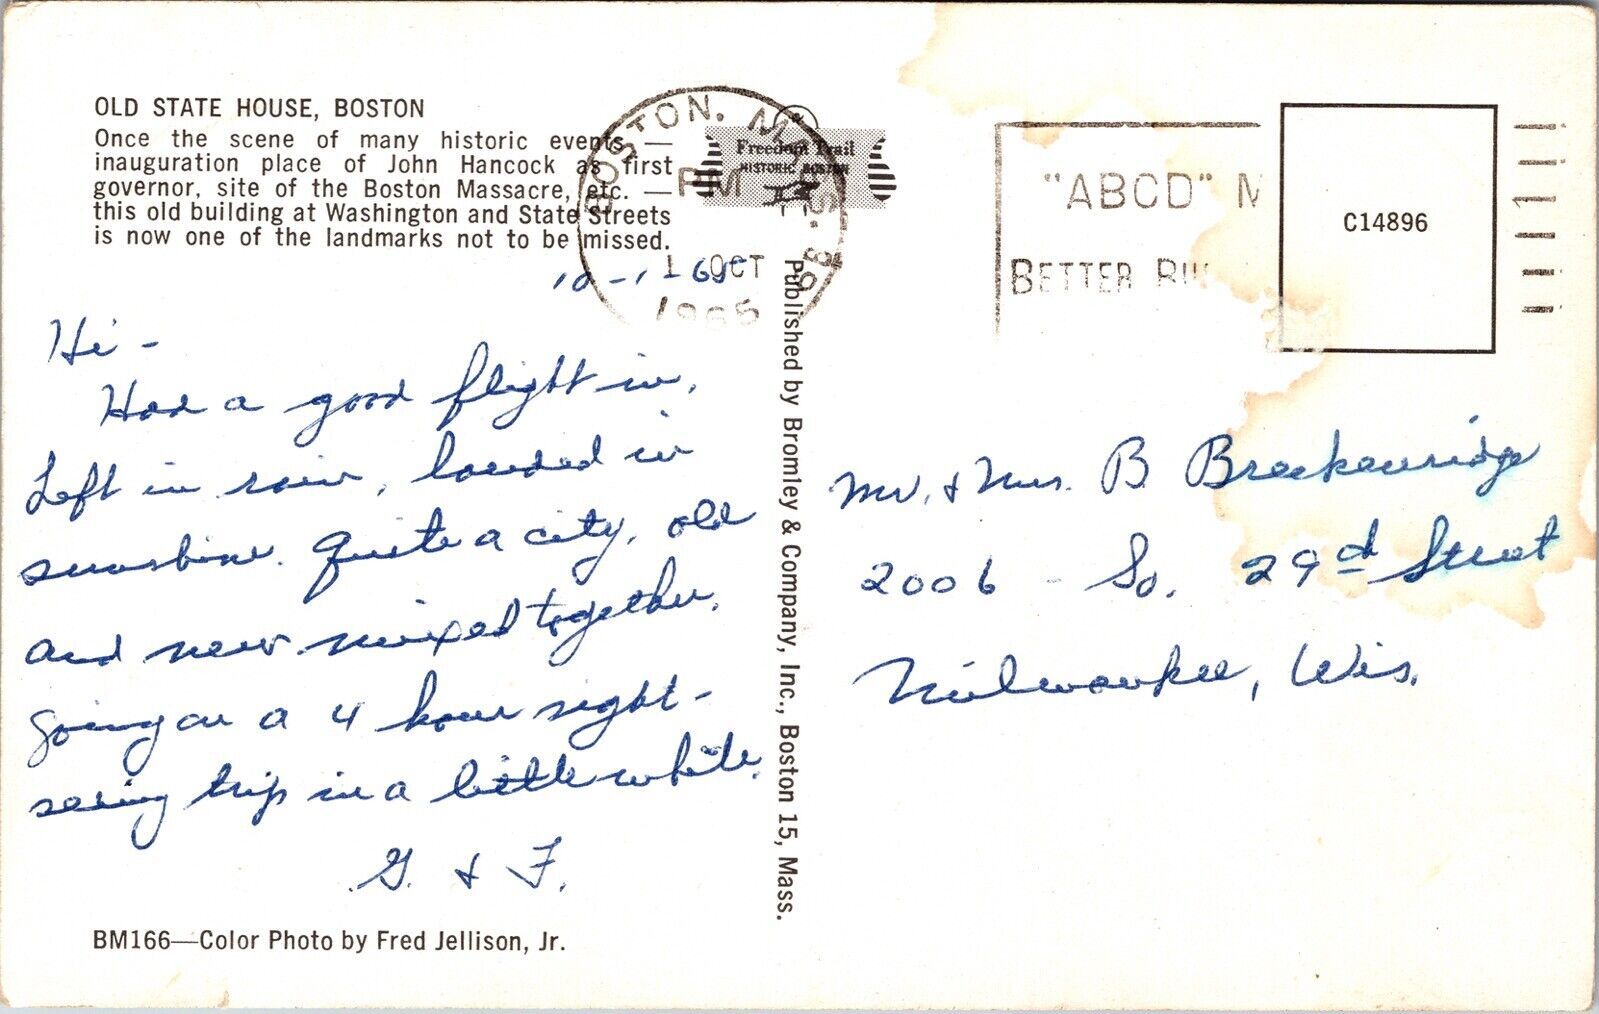 OLD STATE HOUSE, BOSTON
Once the scene of many historic events —
inauguration place of John Hancock as first
governor, site of the Boston Massacre, etc. —
this old building at Washington and State Streets
is now one of the landmarks not to be missed.
10-1-65
Hi -
Had a good flight in.
Left in rain, landed in
sunshine. Quite a city, old
and new mixed together.
Going on a 4 hour sight-
seeing trip in a little while.
G. & F.
BM166—Color Photo by Fred Jellison, Jr.
BOSTON, MASS.
PM
1 OCT
1965
Freedom Trail
HISTORIC BOSTON
Published by Bromley & Company, Inc., Boston 15, Mass.
"ABCD" M
BETTER BU
C14896
Mr. & Mrs. B Breckenridge
2006 - So. 29th Street
Milwaukee, Wis.